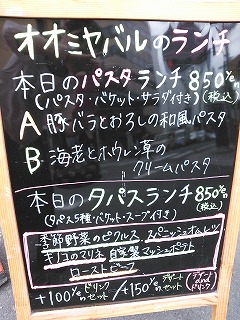 オオミヤバルのランチ
本日のパスタランチ 850%
(パスタ・バケット・サラダ付き) (税込)
A 豚バラとおろしの和風パスタ
B 海老とホウレン草の
クリームパスタ
本日のタパスランチ 850
(タパス5種・バケット・スープ付き) (税込)
季節野菜のピクルス スパニッシュオムレツ
キノコのマリネ 自家製マッシュポテト
ローストビーフ
+100 ドリンクセット / +150 デザートセット (デザート ドリンク)